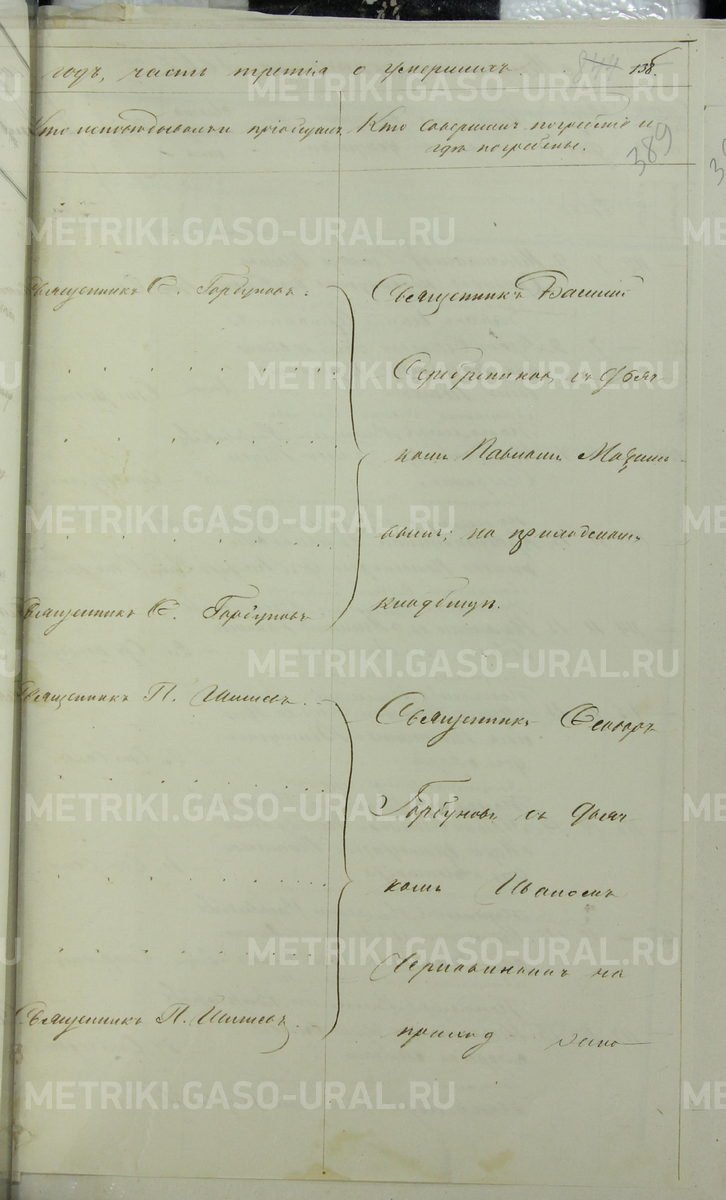 годъ, часть третія о умершихъ. 138.
389
Кто исповѣдывалъ и пріобщалъ
Кто совершалъ погребеніе и
гдѣ погребены.
Священникъ Ѳ. Горбуновъ.
Священникъ Василій
Серебрениковъ съ дьяч
комъ Павломъ
вымъ; на приходскомъ
кладбищѣ.
Священникъ Ѳ. Горбуновъ
Священникъ П.
Священникъ Ѳеодоръ
Горбуновъ съ дьяч
комъ Иваномъ
на
приход
Священникъ П.
METRIKI.GASO-URAL.RU